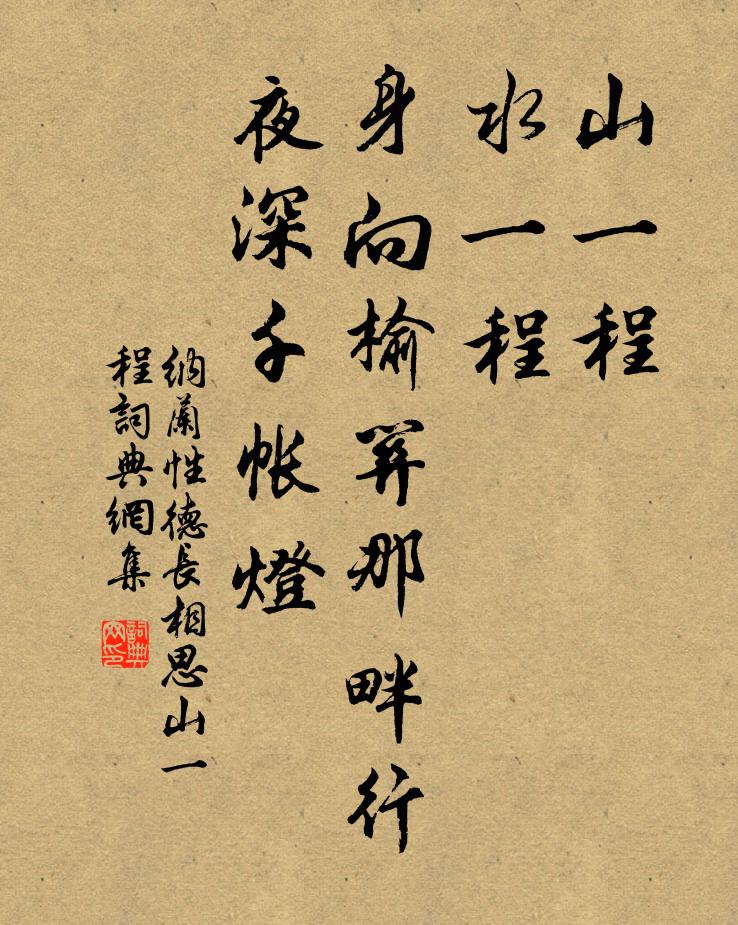 山一程
水一程
身向榆關那畔行
夜深千帳燈
納蘭性德長相思山一
程詞典網集
詞典
网印